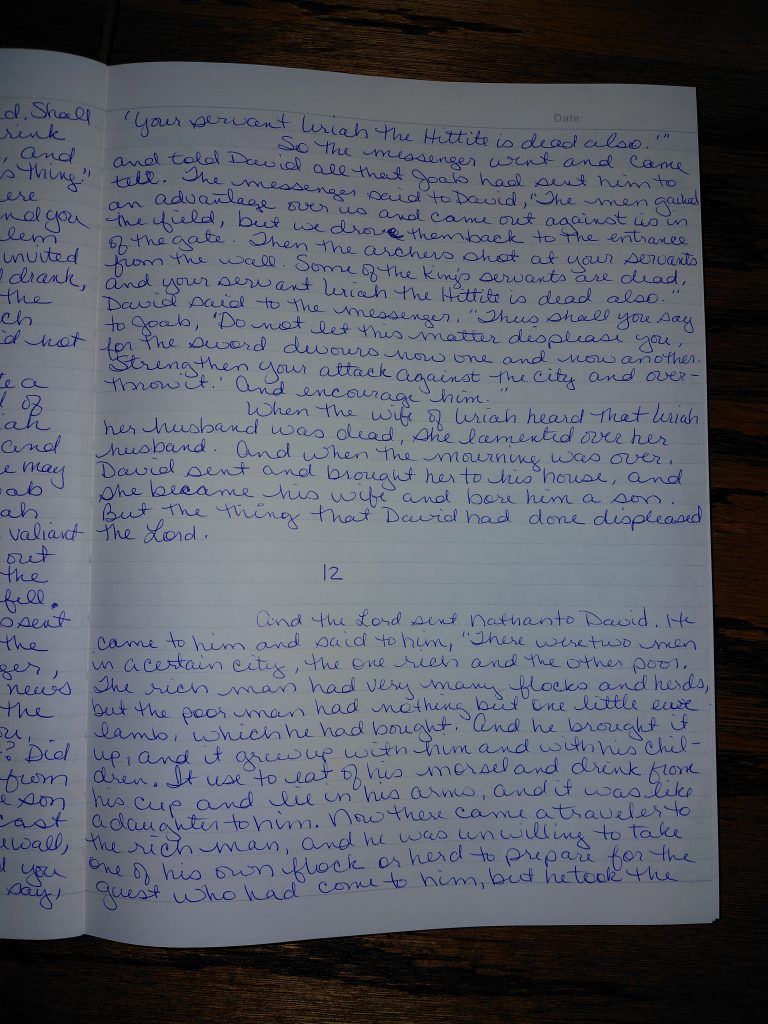 d. Shall
rink
, and
s thing."
ere
nd you
lem
invited
drank,
the
ch
id not
te a
l of
iah
and
e may
oab
ah
valiant
out
the
fell.
o sent
the
ger,
news
the
ou,
? Did
from
e son
cast
e wall,
d you
say,
Date:
'Your servant Uriah the Hittite is dead also.'"
So the messenger went and came
and told David all that Joab had sent him to
tell. The messenger said to David, "The men gained
an advantage over us and came out against us in
the field, but we drove them back to the entrance
of the gate. Then the archers shot at your servants
from the wall. Some of the King's servants are dead,
and your servant Uriah the Hittite is dead also."
David said to the messenger, "Thus shall you say
to Joab, 'Do not let this matter displease you,
for the sword devours now one and now another.
Strengthen your attack against the city and over-
throw it.' And encourage him."
When the wife of Uriah heard that Uriah
her husband was dead, she lamented over her
husband. And when the mourning was over,
David sent and brought her to his house, and
she became his wife and bore him a son.
But the thing that David had done displeased
the Lord.
12
And the Lord sent Nathan to David. He
came to him and said to him, "There were two men
in a certain city, the one rich and the other poor.
The rich man had very many flocks and herds,
but the poor man had nothing but one little ewe
lamb, which he had bought. And he brought it
up, and it grew up with him and with his chil-
dren. It use to eat of his morsel and drink from
his cup and lie in his arms, and it was like
a daughter to him. Now there came a traveler to
the rich man, and he was unwilling to take
one of his own flock or herd to prepare for the
guest who had come to him, but he took the